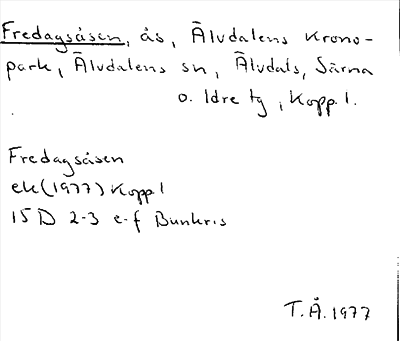 Fredagsåsen, ås, Älvdalens Krono-
park, Älvdalens sn, Älvdals, Särna
o. Idre tg, Kopp. l.
Fredagsåsen
ek (1977) Kopp l
15 D 2-3 e-f Bunkris
T.Å. 1977